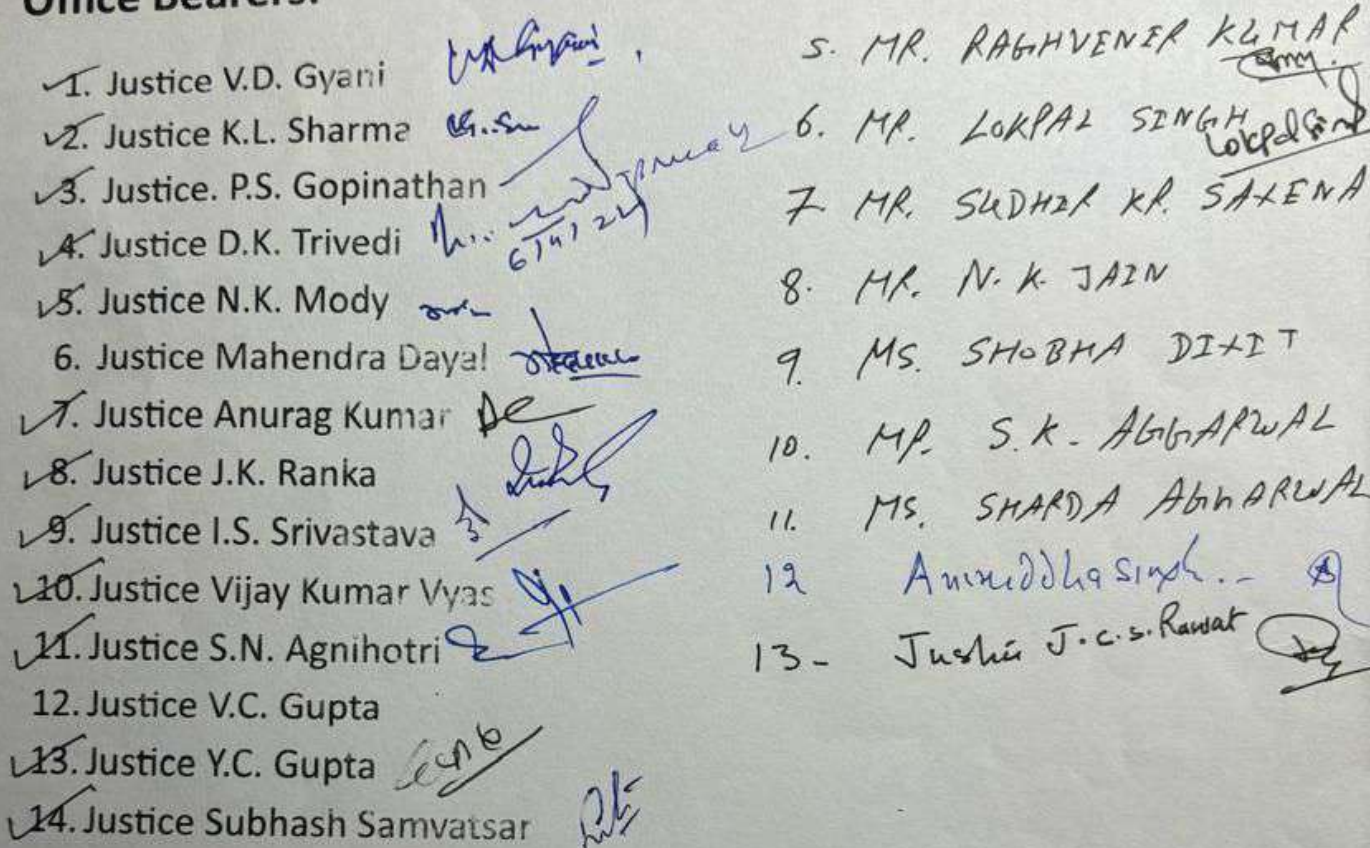 Office Bearers:
1. Justice V.D. Gyani
2. Justice K.L. Sharma
3. Justice. P.S. Gopinathan
4. Justice D.K. Trivedi
5. Justice N.K. Mody
6. Justice Mahendra Dayal
7. Justice Anurag Kumar
8. Justice J.K. Ranka
9. Justice I.S. Srivastava
10. Justice Vijay Kumar Vyas
11. Justice S.N. Agnihotri
12. Justice V.C. Gupta
13. Justice Y.C. Gupta
14. Justice Subhash Samvatsar
5. MR. RAGHVENER KUMAR
6. MR. LOKPAL SINGH
Lokpal Singh
7. MR. SUDHIR KR. SAXENA
8. MR. N. K. JAIN
9. MS. SHOBHA DIXIT
10. MR. S.K. AGGARWAL
11. MS. SHARDA AGGARWAL
12 Aniruddha Singh
13- Justice J.C.S. Rawat